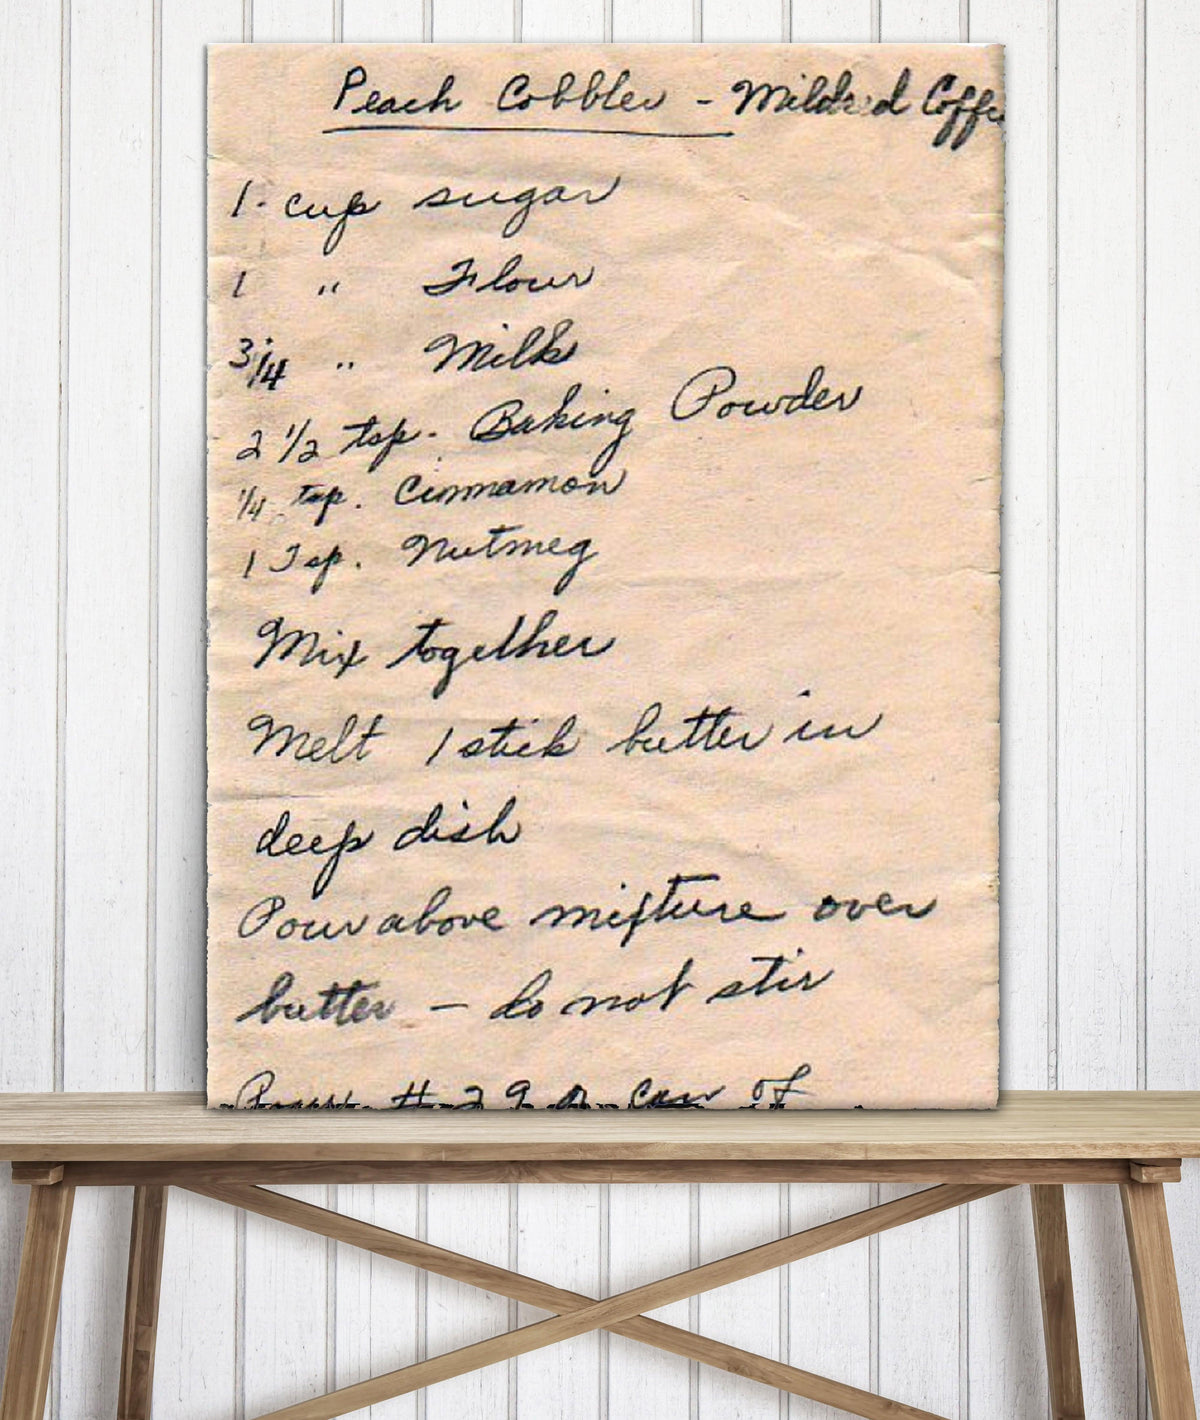 Peach Cobbler - Mildred
1. cup sugar
1 " Flour
3/4 " Milk
2 1/2 tsp. Baking Powder
1/4 tsp. Cinnamon
1 Tsp. Nutmeg
Mix together
Melt 1 stick butter in
deep dish
Pour above mixture over
butter - do not stir
# 2 can of